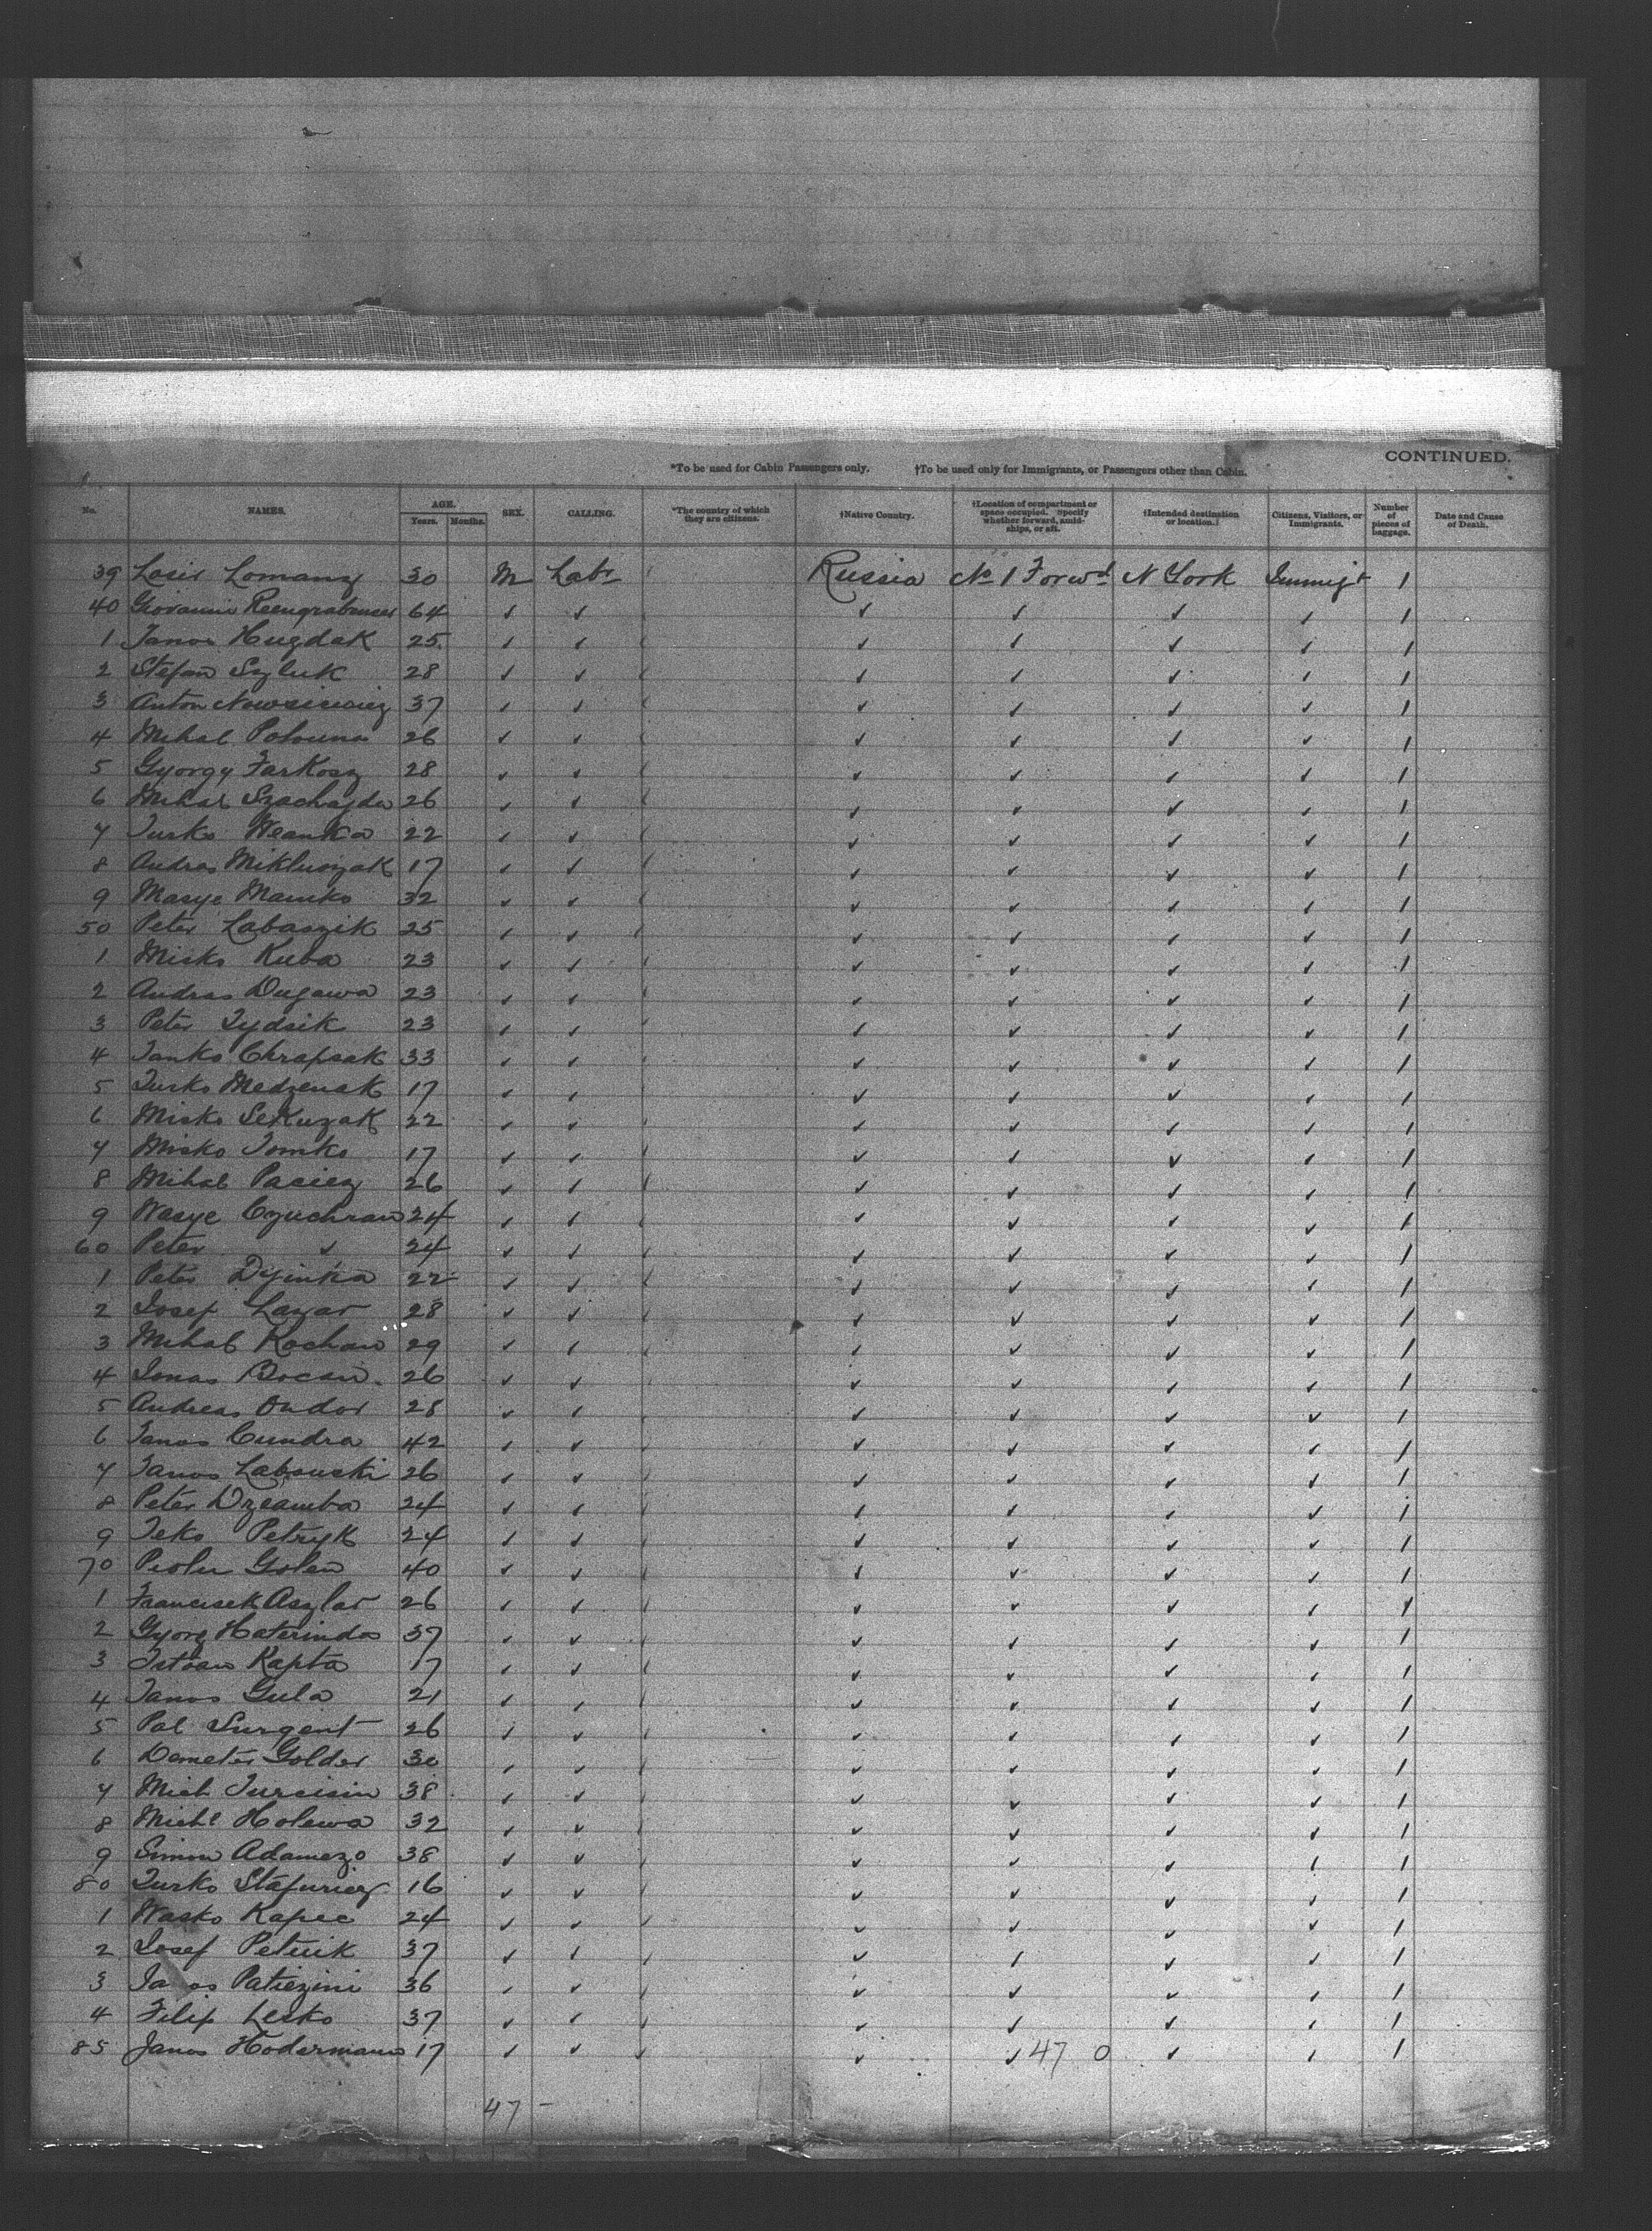 CONTINUED.
*To be used for Cabin Passengers only. †To be used only for Immigrants, or Passengers other than Cabin.
No. NAMES. AGE. Years. Months. SEX. CALLING. *The country of which they are citizens. †Native Country. †Location of compartment or space occupied. Specify whether forward, amidships, or aft. †Intended destination or location. Citizens, Visitors, or Immigrants. Number of pieces of baggage. Date and Cause of Death.
39 Losir Lomanz 30 M Labr Russia No 1 Forwd N York Immigt 1
40 Giovanni 64 ✓ ✓ ✓ ✓ ✓ ✓ 1
1 Janos Hugdak 25 ✓ ✓ ✓ ✓ ✓ ✓ 1
2 Stefan Szluk 28 ✓ ✓ ✓ ✓ ✓ ✓ 1
3 Anton 37 ✓ ✓ ✓ ✓ ✓ ✓ 1
4 Mihal 26 ✓ ✓ ✓ ✓ ✓ ✓ 1
5 Gyorgy Farkosz 28 ✓ ✓ ✓ ✓ ✓ ✓ 1
6 Mihal Szachajda 26 ✓ ✓ ✓ ✓ ✓ ✓ 1
7 Jurko Weanka 22 ✓ ✓ ✓ ✓ ✓ ✓ 1
8 Andras Mikluszak 17 ✓ ✓ ✓ ✓ ✓ ✓ 1
9 Masye Mamko 32 ✓ ✓ ✓ ✓ ✓ ✓ 1
50 Peter Labaszik 25 ✓ ✓ ✓ ✓ ✓ ✓ 1
1 Misko Kuba 23 ✓ ✓ ✓ ✓ ✓ ✓ 1
2 Andras Dugawa 23 ✓ ✓ ✓ ✓ ✓ ✓ 1
3 Peter Tydsik 23 ✓ ✓ ✓ ✓ ✓ ✓ 1
4 Janko Chrapsak 33 ✓ ✓ ✓ ✓ ✓ ✓ 1
5 Jurko Medzenak 17 ✓ ✓ ✓ ✓ ✓ ✓ 1
6 Misko Sekuzak 22 ✓ ✓ ✓ ✓ ✓ ✓ 1
7 Misko Tomko 17 ✓ ✓ ✓ ✓ ✓ ✓ 1
8 Mihal Paciez 26 ✓ ✓ ✓ ✓ ✓ ✓ 1
9 Wasye Czuchran 24 ✓ ✓ ✓ ✓ ✓ ✓ 1
60 Peter ✓ 24 ✓ ✓ ✓ ✓ ✓ ✓ 1
1 Peter Dzinka 22 ✓ ✓ ✓ ✓ ✓ ✓ 1
2 Josef Lazar 28 ✓ ✓ ✓ ✓ ✓ ✓ 1
3 Mihal Kochan 29 ✓ ✓ ✓ ✓ ✓ ✓ 1
4 Jonas Bocan 26 ✓ ✓ ✓ ✓ ✓ ✓ 1
5 Andreas Ondor 28 ✓ ✓ ✓ ✓ ✓ ✓ 1
6 Janos Cundra 42 ✓ ✓ ✓ ✓ ✓ ✓ 1
7 Janos Labouski 26 ✓ ✓ ✓ ✓ ✓ ✓ 1
8 Peter Dzcamba 24 ✓ ✓ ✓ ✓ ✓ ✓ 1
9 Teko Petryk 24 ✓ ✓ ✓ ✓ ✓ ✓ 1
70 Golen 40 ✓ ✓ ✓ ✓ ✓ ✓ 1
1 Francisek Aszlar 26 ✓ ✓ ✓ ✓ ✓ ✓ 1
2 Gyorg Haterinda 37 ✓ ✓ ✓ ✓ ✓ ✓ 1
3 Istvan Kapta 17 ✓ ✓ ✓ ✓ ✓ ✓ 1
4 Janos Gula 21 ✓ ✓ ✓ ✓ ✓ ✓ 1
5 Pal Surgent 26 ✓ ✓ ✓ ✓ ✓ ✓ 1
6 Demeter Golder 30 ✓ ✓ ✓ ✓ ✓ ✓ 1
7 Mich Jurcisin 38 ✓ ✓ ✓ ✓ ✓ ✓ 1
8 Michl Holewa 32 ✓ ✓ ✓ ✓ ✓ ✓ 1
9 Simon Adamezo 38 ✓ ✓ ✓ ✓ ✓ ✓ 1
80 Jurko Stafuriez 16 ✓ ✓ ✓ ✓ ✓ ✓ 1
1 Wasko Kapec 24 ✓ ✓ ✓ ✓ ✓ ✓ 1
2 Josef Petrik 37 ✓ ✓ ✓ ✓ ✓ ✓ 1
3 Patiezini 36 ✓ ✓ ✓ ✓ ✓ ✓ 1
4 Filip Lesko 37 ✓ ✓ ✓ ✓ ✓ ✓ 1
85 Janos Hodermans 17 ✓ ✓ ✓ ✓ 47 0 ✓ ✓ 1
47 –